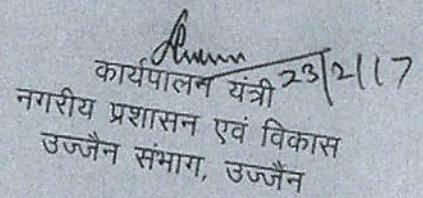 कार्यपालन यंत्री 23/2/17
नगरीय प्रशासन एवं विकास
उज्जैन संभाग, उज्जैन